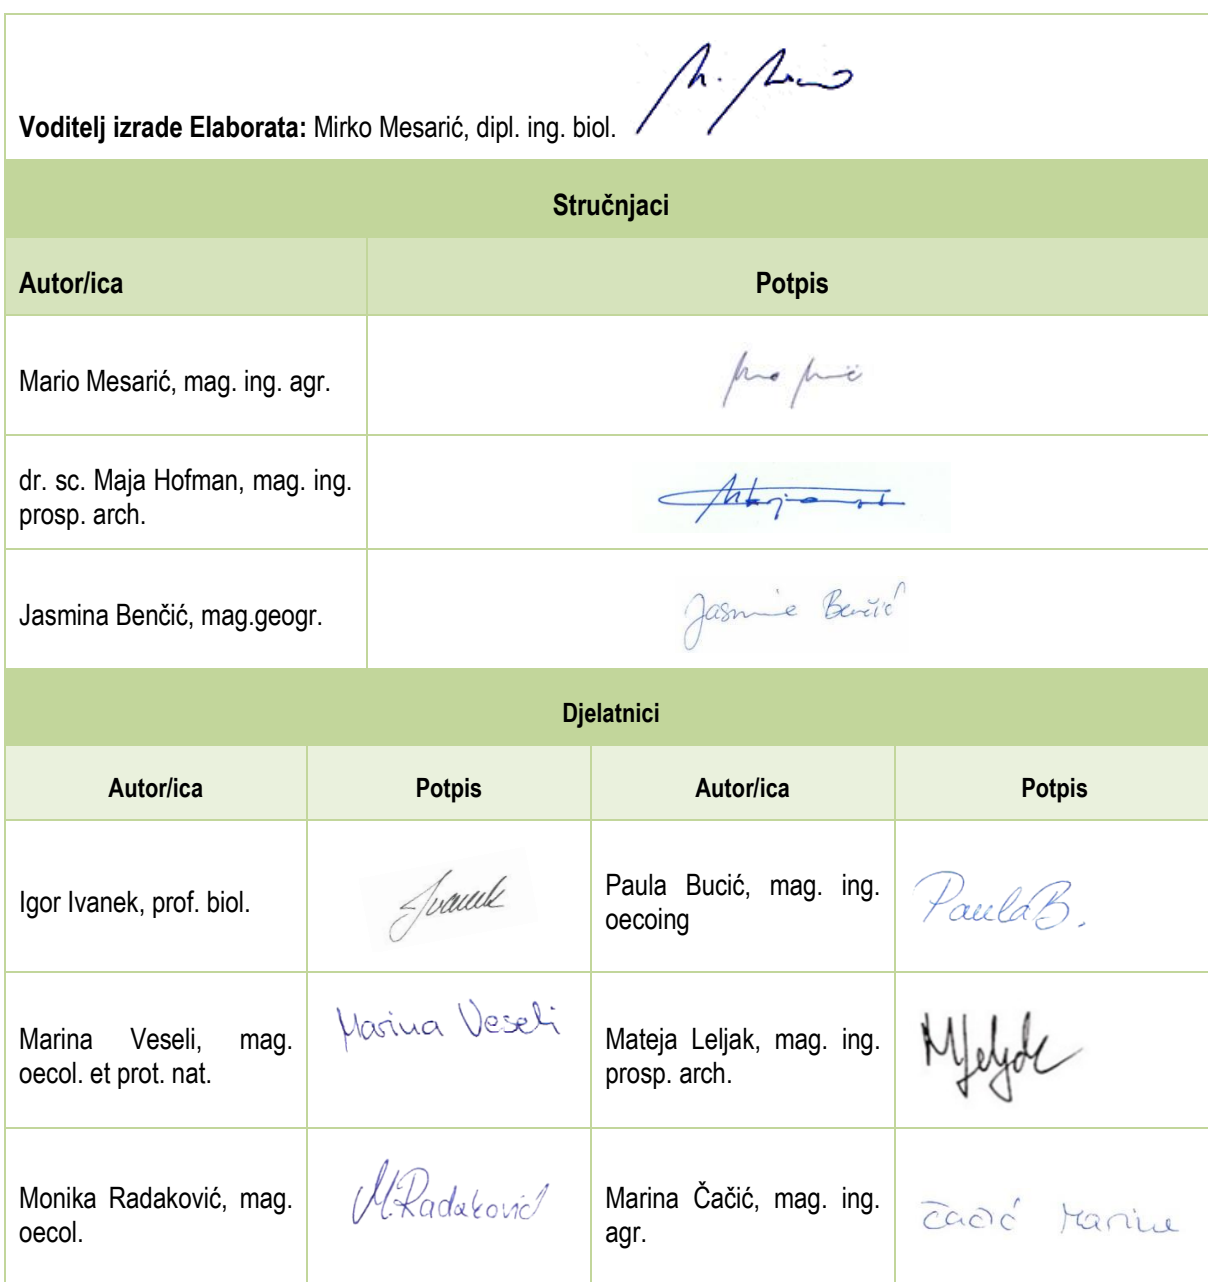 Voditelj izrade Elaborata: Mirko Mesarić, dipl. ing. biol.
Stručnjaci
Autor/ica Potpis
Mario Mesarić, mag. ing. agr.
dr. sc. Maja Hofman, mag. ing.
prosp. arch.
Jasmina Benčić, mag.geogr. Jasmine Benčić
Djelatnici
Autor/ica Potpis Autor/ica Potpis
Igor Ivanek, prof. biol. Ivanek
Paula Bucić, mag. ing.
oecoing
PaulaB.
Marina Veseli, mag.
oecol. et prot. nat.
Marina Veseli
Mateja Leljak, mag. ing.
prosp. arch.
Monika Radaković, mag.
oecol.
M.Radaković
Marina Čačić, mag. ing.
agr.
Čačić Marina